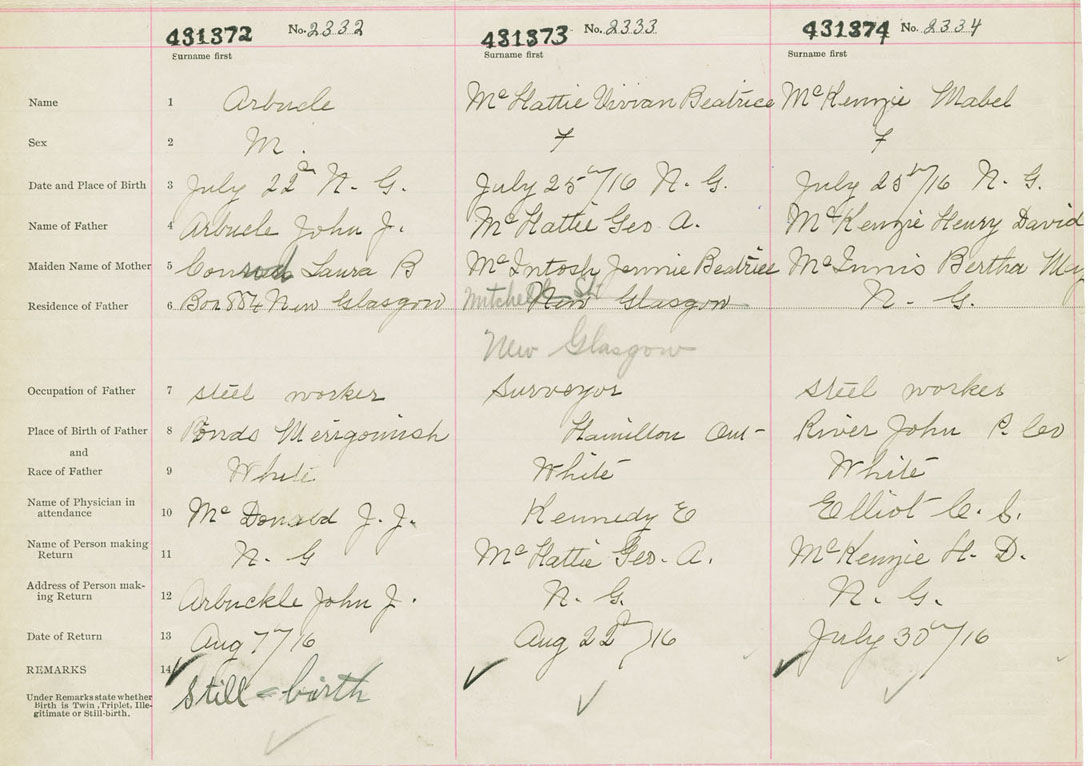 431372 No. 2332 431373 No. 2333 431374 No. 2334
Surname first Surname first Surname first
Name 1 Arbucle McHattie Vivian Beatrice McKenzie Mabel
Sex 2 M. F F
Date and Place of Birth 3 July 22d N. G. July 25th/16 N. G. July 25th/16 N. G.
Name of Father 4 Arbucle John J. McHattie Geo. A. McKenzie Henry David
Maiden Name of Mother 5 Conrod Laura B McIntosh Jennie Beatrice McInnis Bertha May
Residence of Father 6 Box 854 New Glasgow Mitchell St. New Glasgow N. G.
New Glasgow
Occupation of Father 7 steel worker Surveyor steel worker
Place of Birth of Father 8 Ponds Merigomish Hamilton Ont- River John P. Co
and
Race of Father 9 White White White
Name of Physician in
attendance 10 McDonald J. J. Kennedy E Elliot C. S.
Name of Person making
Return 11 N. G McHattie Geo. A. McKenzie H. D.
Address of Person mak-
ing Return 12 Arbuckle John J. N. G. N. G.
Date of Return 13 Aug 7th/16 Aug 22d/16 July 30th/16
REMARKS 14 Still-birth
Under Remarks state whether
Birth is Twin, Triplet, Ille-
gitimate or Still-birth.